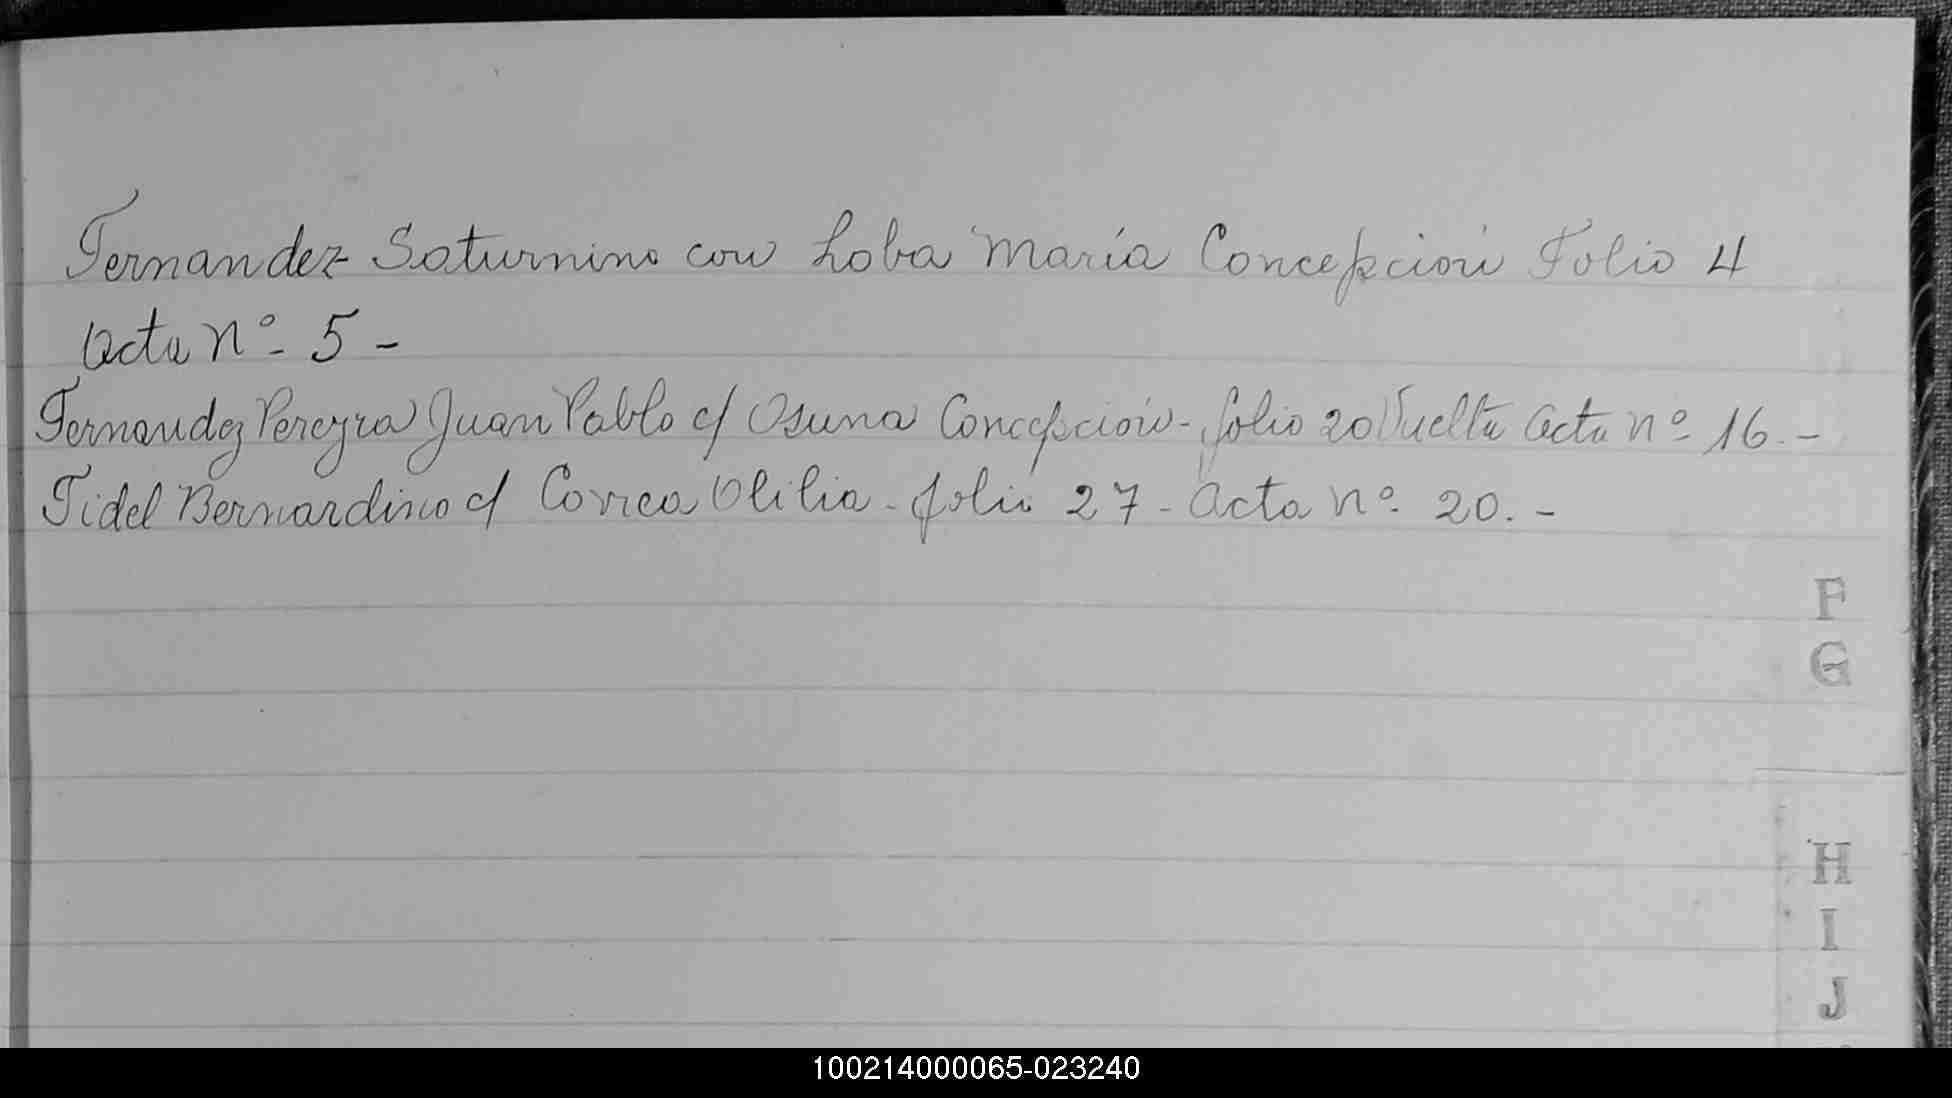 Fernandez Saturnino con Loba María Concepción Folio 4
Acta nº 5 -
Fernandez Pereyra Juan Pablo c/ Osuna Concepción - folio 20 Vuelta Acta nº 16. -
Fidel Bernardino c/ Correa Olilia - folio 27 - Acta nº 20. -
F
G
H
I
J
100214000065-023240